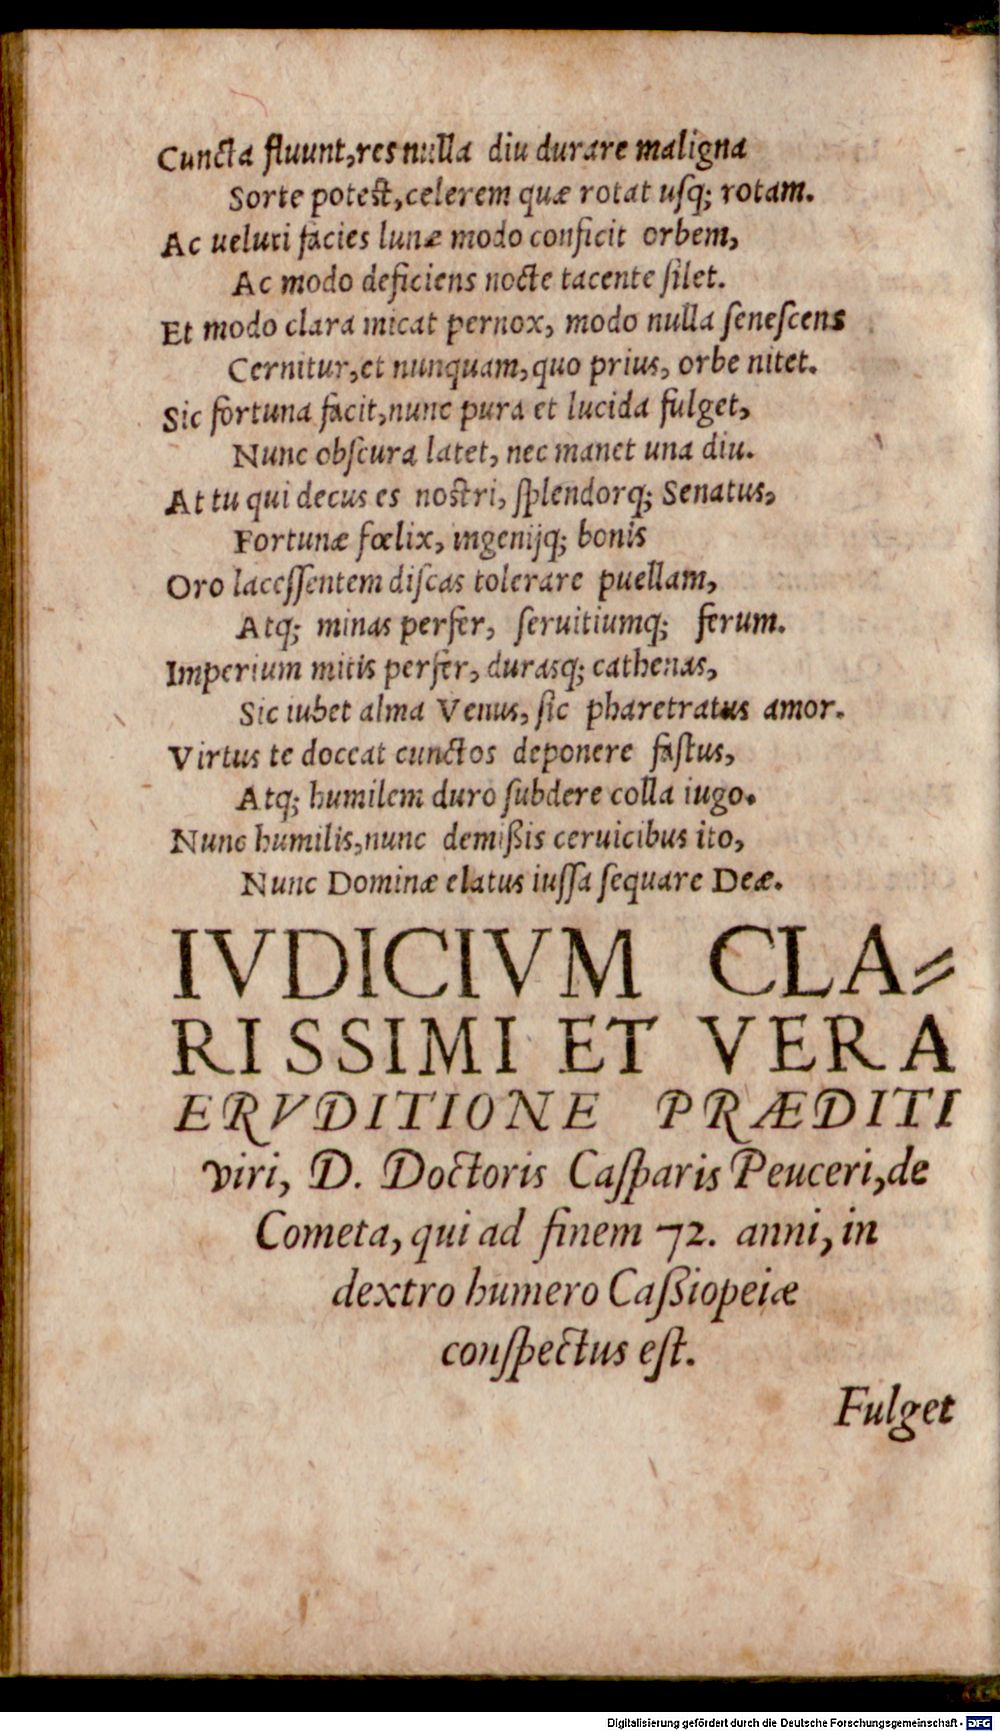 Cuncta fluunt, res nulla diu durare maligna
Sorte potest, celerem quæ rotat uſq; rotam.
Ac ueluti facies lunæ modo conficit orbem,
Ac modo deficiens nocte tacente ſilet.
Et modo clara micat pernox, modo nulla ſeneſcens
Cernitur, et nunquam, quo prius, orbe nitet.
Sic fortuna facit, nunc pura et lucida fulget,
Nunc obſcura latet, nec manet una diu.
At tu qui decus es noſtri, ſplendorq; Senatus,
Fortunæ fœlix, ingenijq; bonis
Oro laceſſentem diſcas tolerare puellam,
Atq; minas perfer, ſeruitiumq; ferum.
Imperium mitis perfer, durasq; cathenas,
Sic iubet alma Venus, ſic pharetratus amor.
Virtus te doceat cunctos deponere faſtus,
Atq; humilem duro ſubdere colla iugo.
Nunc humilis, nunc demißis ceruicibus ito,
Nunc Dominæ elatus iuſſa ſequare Deæ.
IVDICIVM CLA⸗
RISSIMI ET VERA
ERVDITIONE PRÆDITI
viri, D. Doctoris Caſparis Peuceri, de
Cometa, qui ad finem 72. anni, in
dextro humero Caßiopeiæ
conſpectus eſt.
Fulget
Digitalisierung gefördert durch die Deutsche Forschungsgemeinschaft - DFG